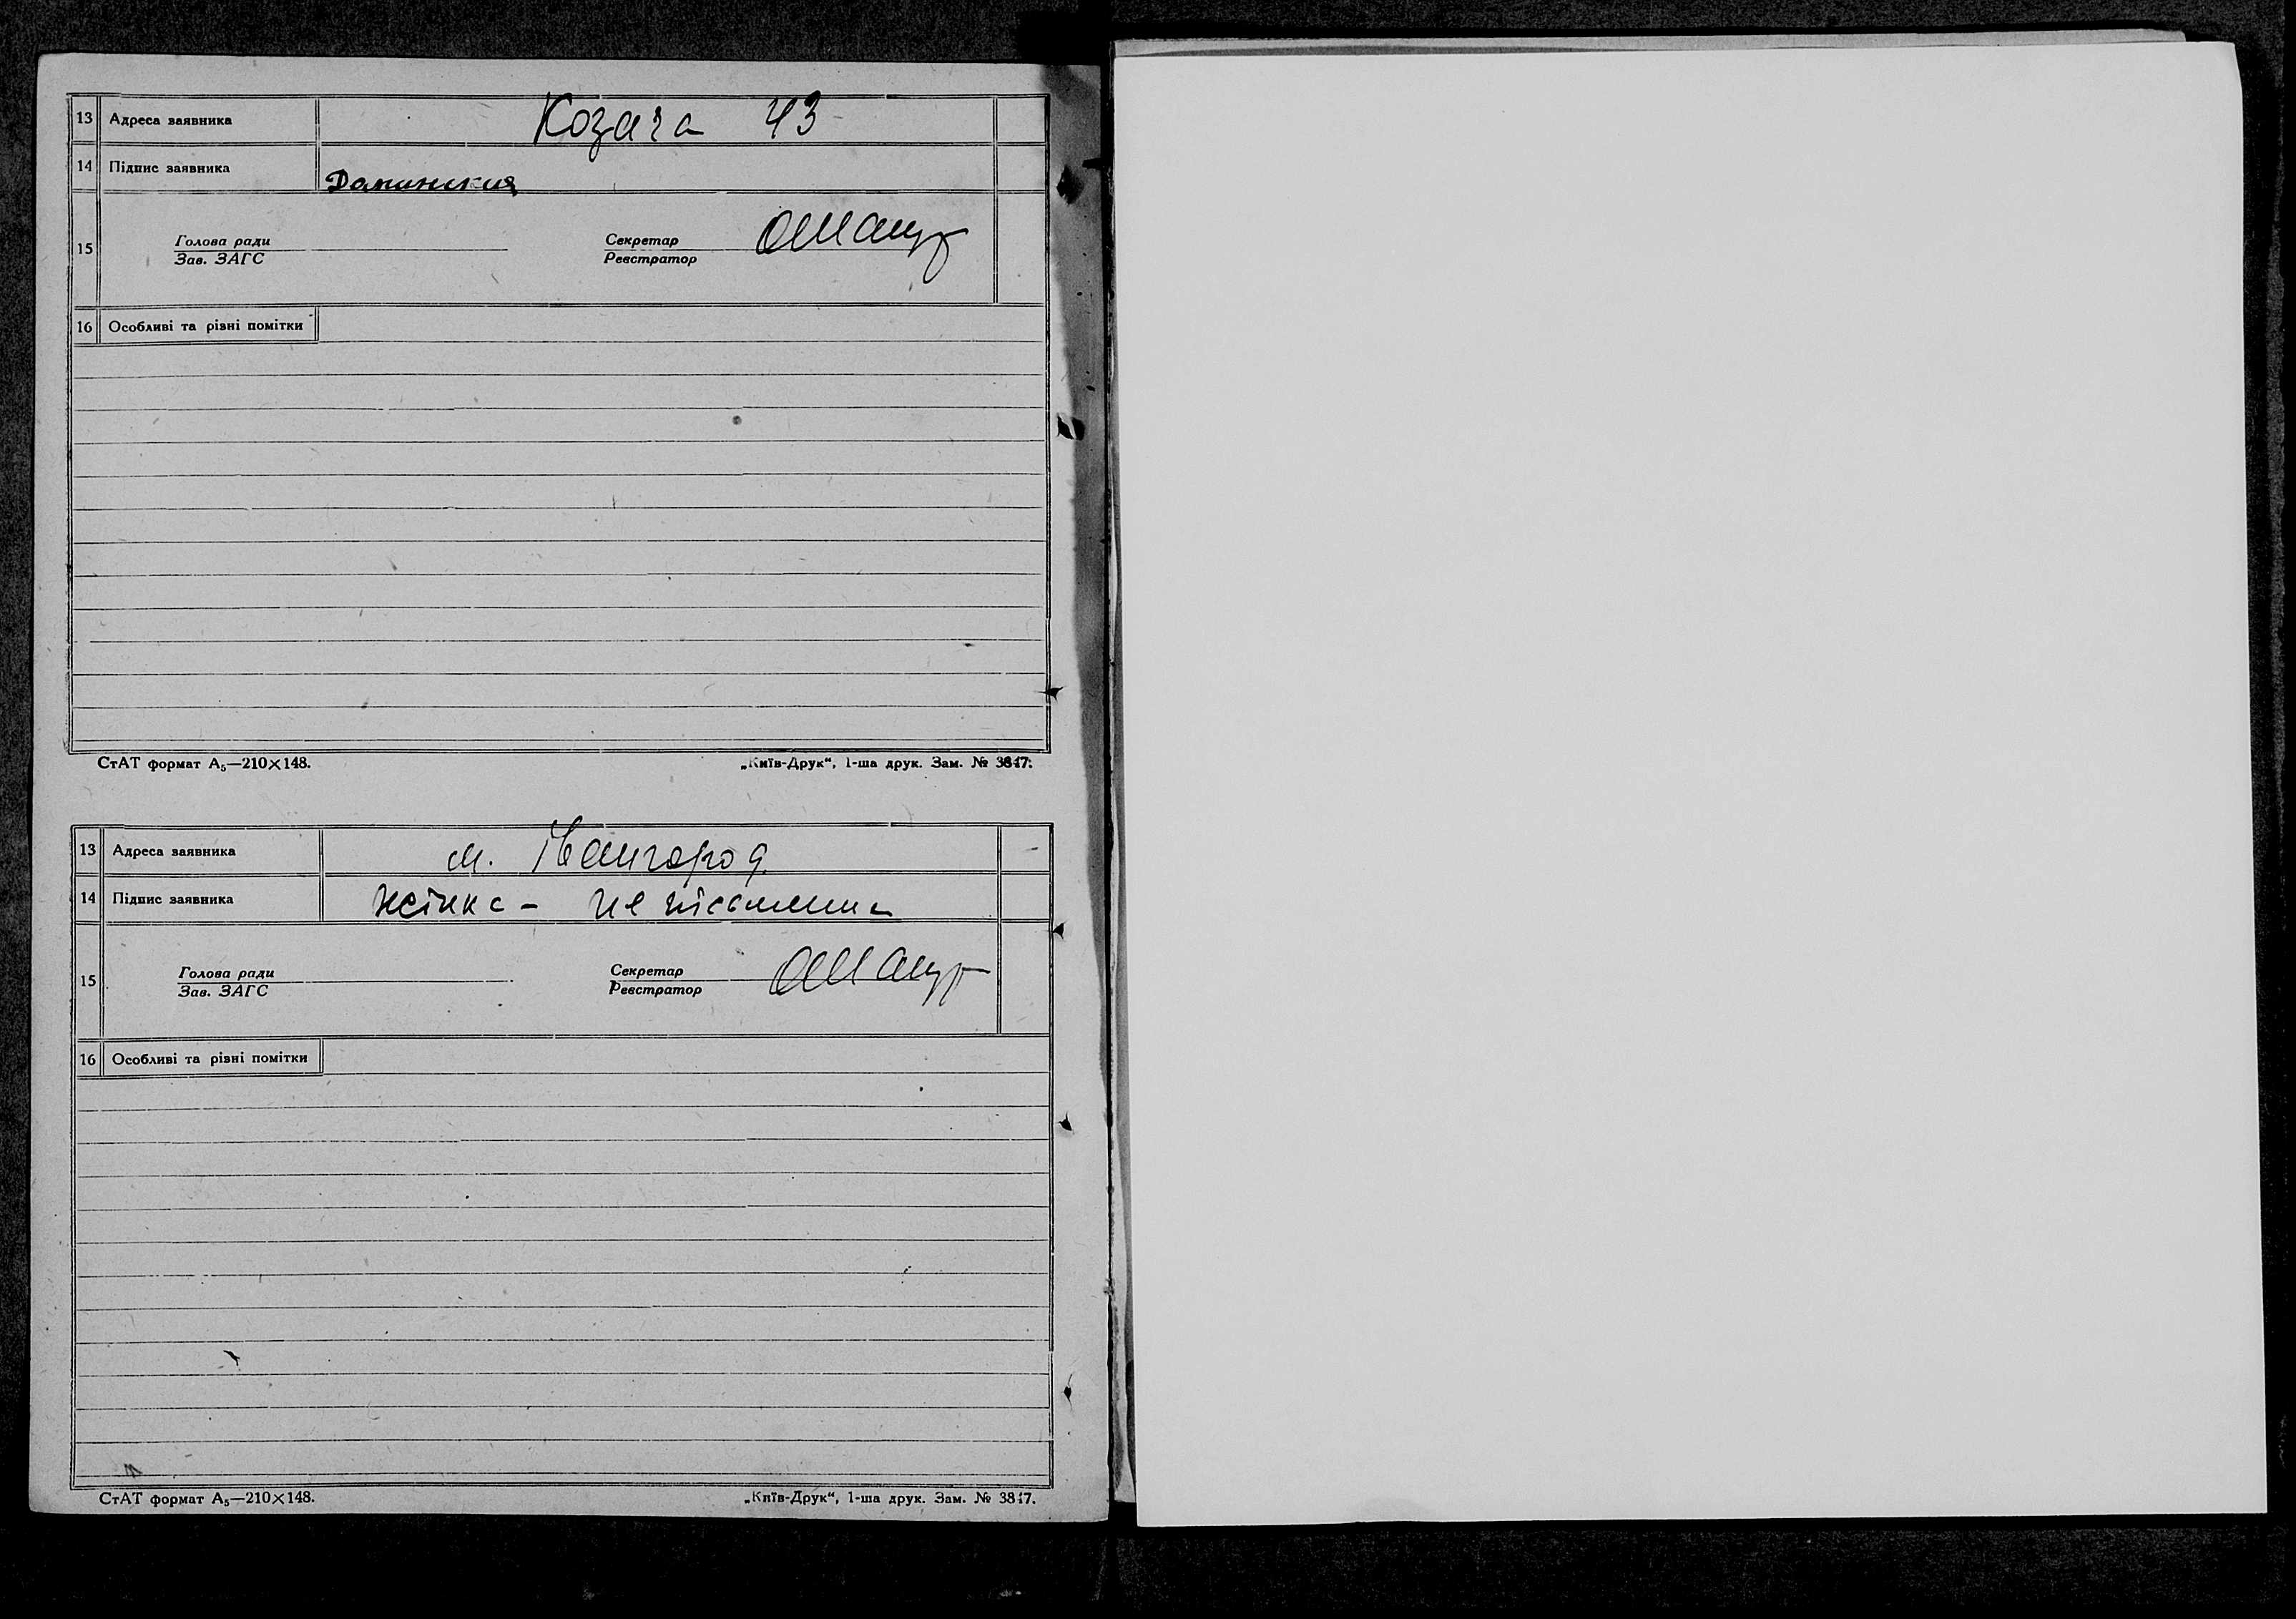 13 Адреса заявника Козача 43
14 Підпис заявника
15 Голова ради Секретар
Зав. ЗАГС Реєстратор
16 Особливі та різні помітки
СтАТ формат А₅—210×148. „Київ-Друк“, 1-ша друк. Зам. № 3847.
13 Адреса заявника м. Івангород
14 Підпис заявника жінка - не письменна
15 Голова ради Секретар
Зав. ЗАГС Реєстратор
16 Особливі та різні помітки
СтАТ формат А₅—210×148. „Київ-Друк“, 1-ша друк. Зам. № 3847.